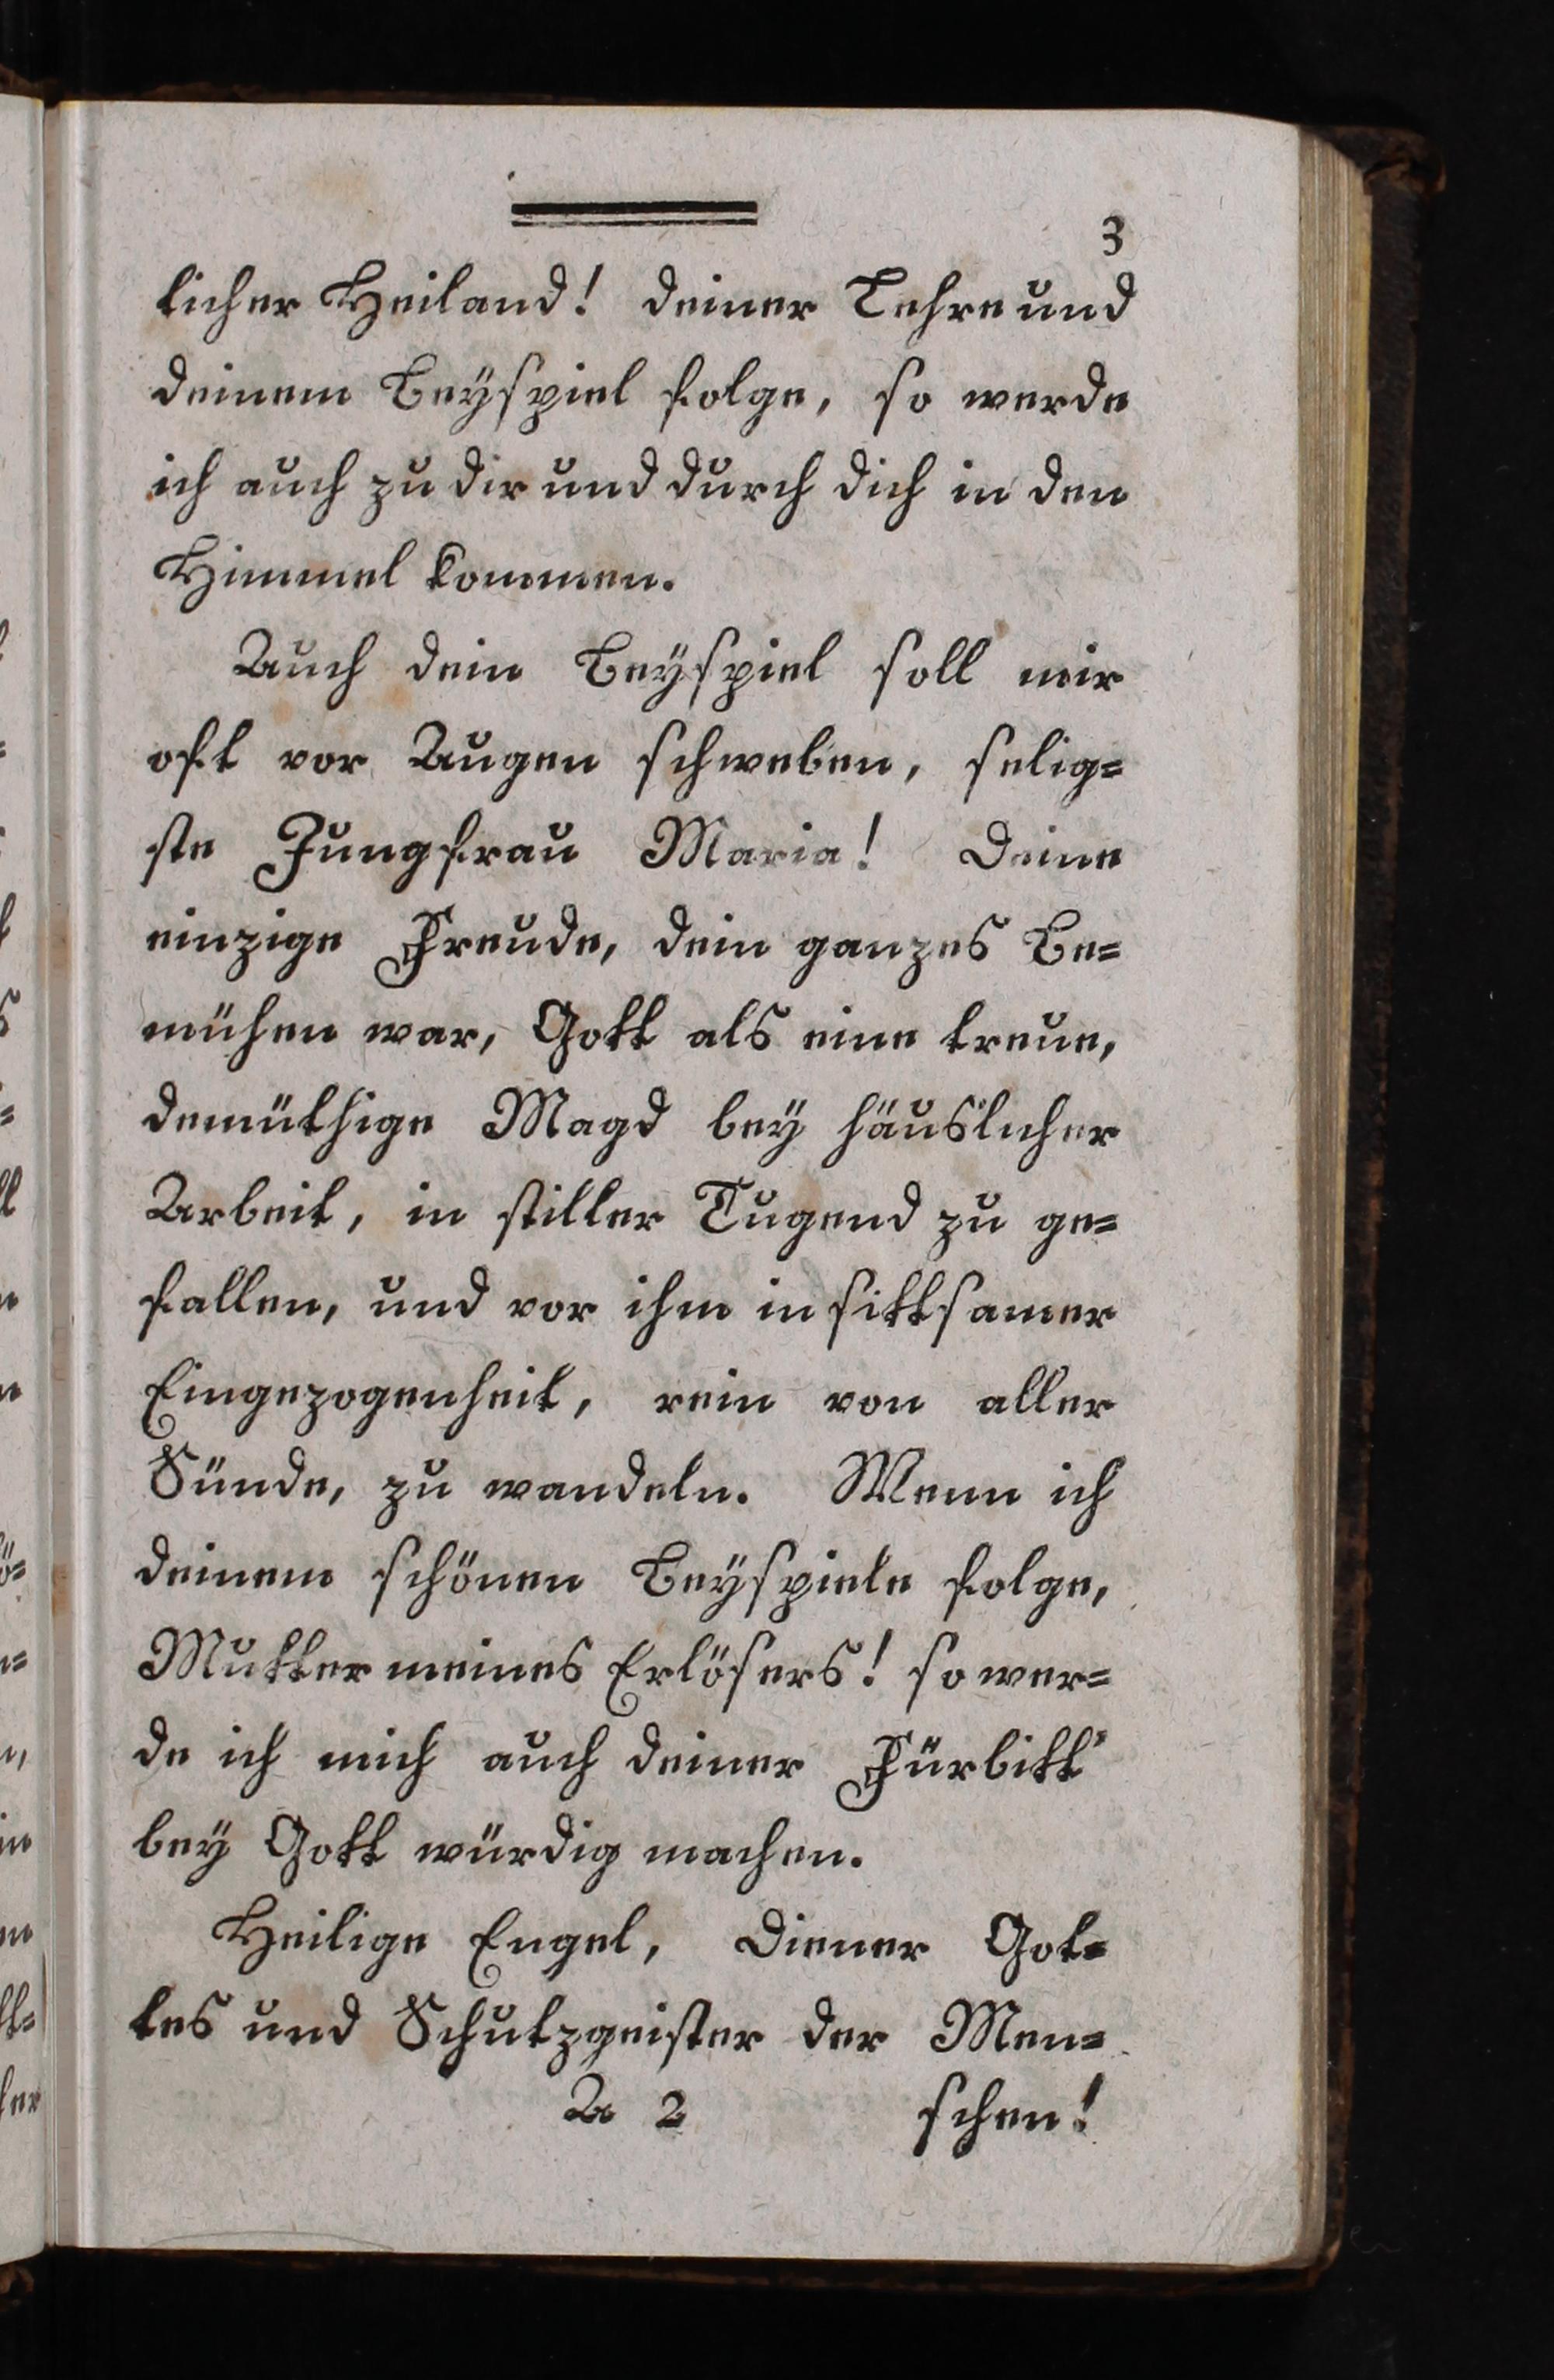 3
licher Heiland! deiner Lehre und
deinem Beyspiel folge, so werde
ich auch zu dir und durch dich in den
Himmel kommen.
Auch dein Beyspiel soll mir
oft vor Augen schweben, selig=
ste Jungfrau Maria! Deine
einzige Freude, dein ganzes Be=
mühen war, Gott als eine treue,
demüthige Magd bey häuslicher
Arbeit, in stiller Tugend zu ge=
fallen, und vor ihm in sittsamer
Eingezogenheit, rein von aller
Sünde, zu wandeln. Wenn ich
deinem schönen Beyspiele folge,
Mutter meines Erlösers! so wer=
de ich mich auch deiner Fürbitt'
bey Gott würdig machen.
Heilige Engel, Diener Got=
tes und Schutzgeister der Men=
A 2 schen!